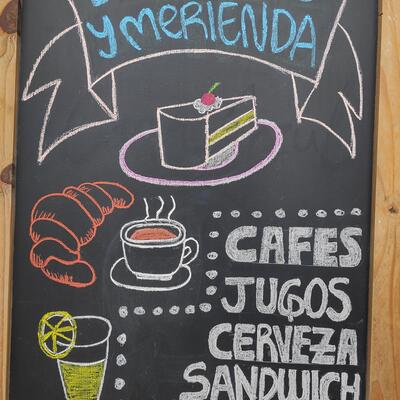 y MERIENDA
CAFES
JUGOS
CERVEZA
SANDWICH